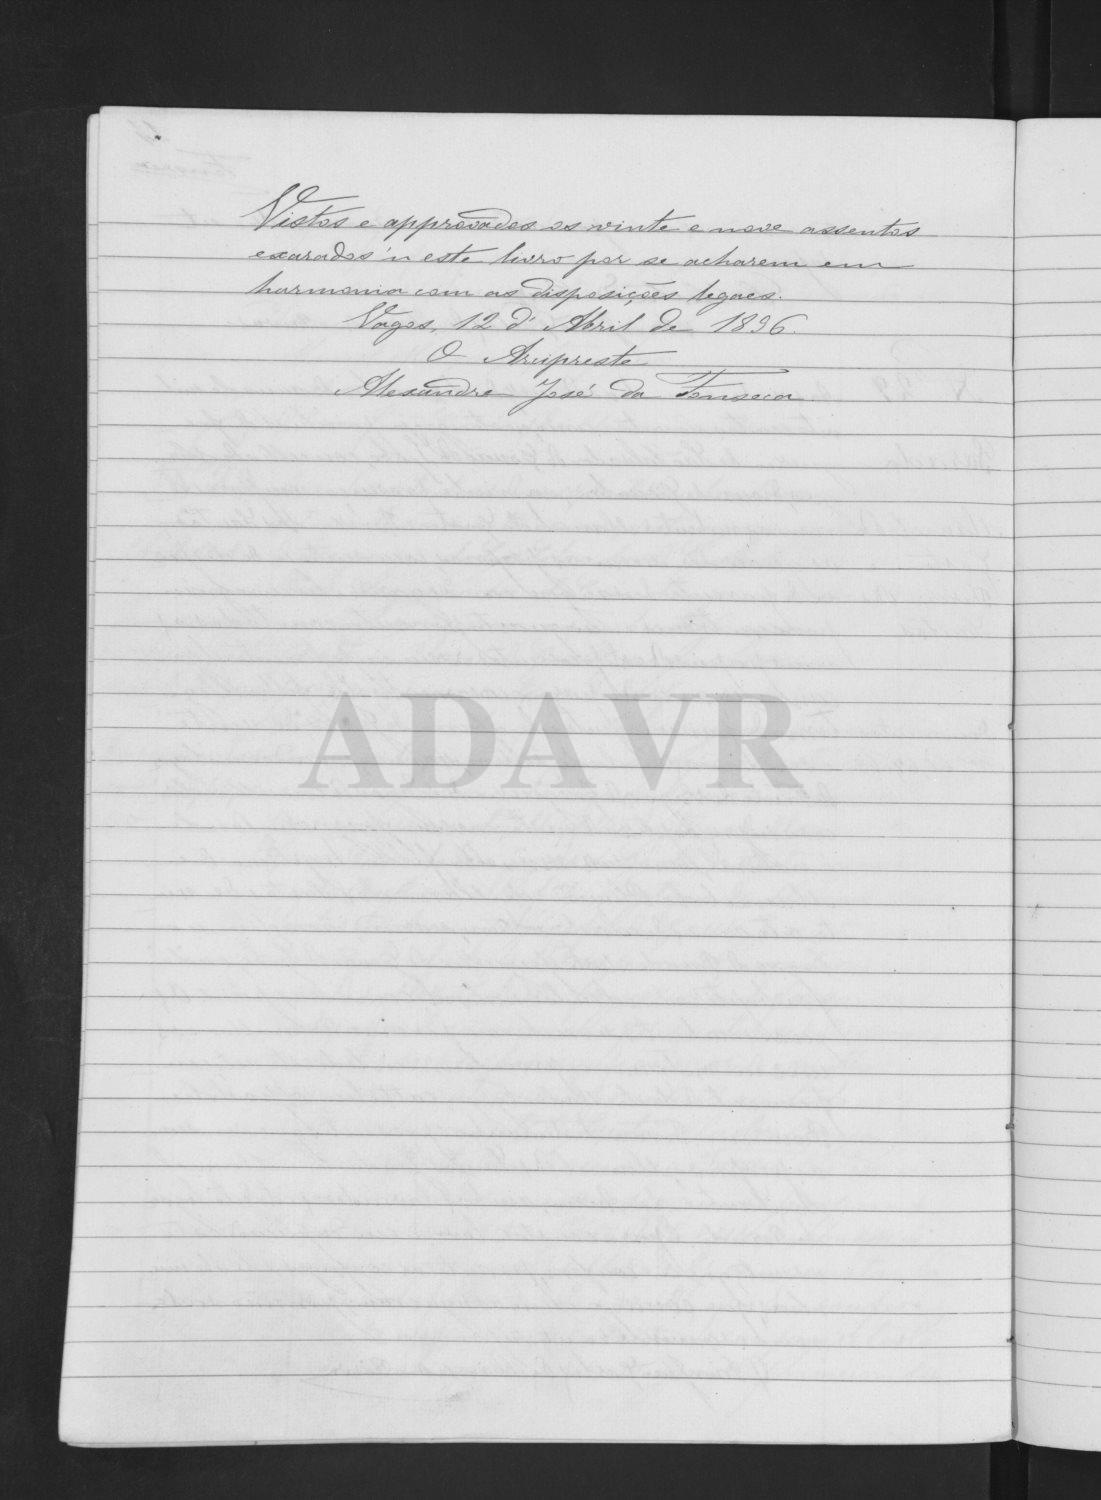 Vistos e approvados os vinte e nove assentos
exarados n'este livro por se acharem em
harmonia com as disposições legaes.
Vagos, 12 d'Abril de 1896.
O Arcipreste
Alexandre José da Fonseca
ADAVR